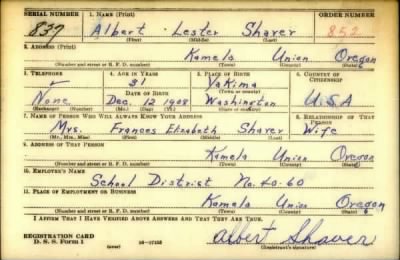 SERIAL NUMBER 1. NAME (Print) ORDER NUMBER
837 Albert Lester Shaver 852
(First) (Middle) (Last)
2. ADDRESS (Print)
Kamela Union Oregon
(Number and street or R. F. D. number) (Town) (County) (State)
3. TELEPHONE 4. AGE IN YEARS 5. PLACE OF BIRTH 6. COUNTRY OF CITIZENSHIP
31 Yakima
DATE OF BIRTH (Town or county)
None Dec. 12 1908 Washington U.S.A
(Exchange) (Number) (Mo.) (Day) (Yr.) (State or country)
7. NAME OF PERSON WHO WILL ALWAYS KNOW YOUR ADDRESS 8. RELATIONSHIP OF THAT PERSON
Mrs. Frances Elizabeth Shaver Wife
(Mr., Mrs., Miss) (First) (Middle) (Last)
9. ADDRESS OF THAT PERSON
Kamela Union Oregon
(Number and street or R. F. D. number) (Town) (County) (State)
10. EMPLOYER'S NAME
School District No. 40-60
11. PLACE OF EMPLOYMENT OR BUSINESS
Kamela Union Oregon
(Number and street or R. F. D. number) (Town) (County) (State)
I AFFIRM THAT I HAVE VERIFIED ABOVE ANSWERS AND THAT THEY ARE TRUE.
REGISTRATION CARD
D. S. S. Form 1 Albert Shaver